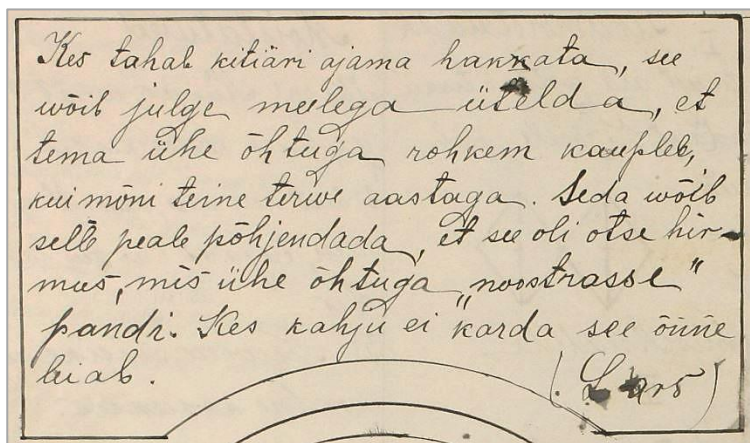 Kes tahab kitiäri ajama hakkata, see
wõib julge meelega ütelda, et
tema ühe õhtuga rohkem kaupleb,
kui mõni teine terwe aastaga. Seda wõib
selle peale põhjendada, et see oli otse hir-
mus, mis ühe õhtuga „noostrasse"
pandi. Kes kahju ei karda see õnne
leiab.